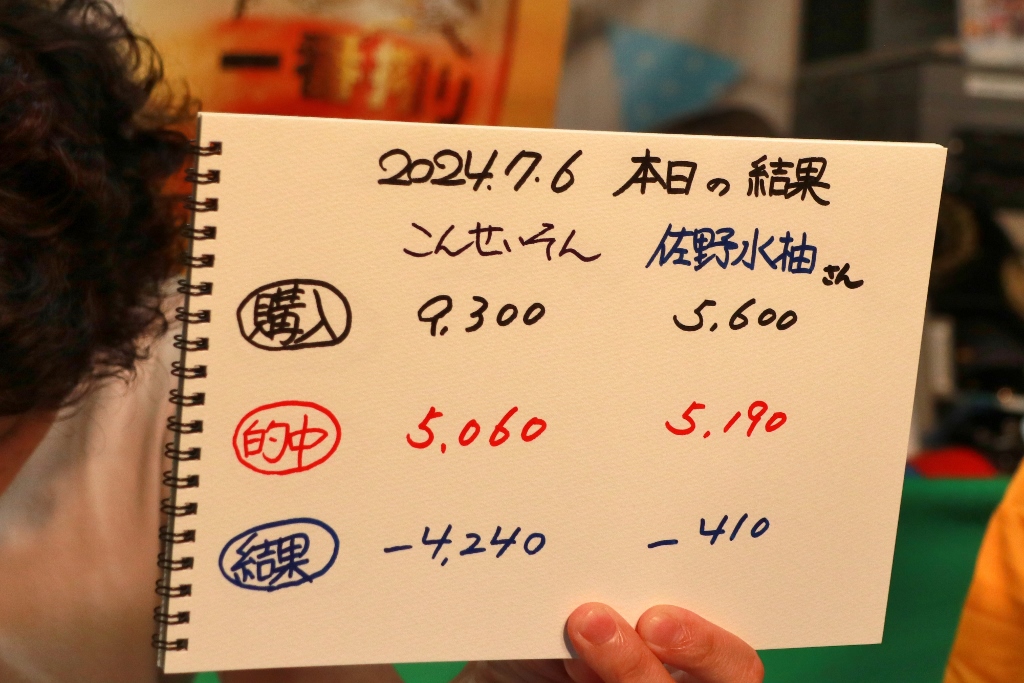 2024.7.6 本日の結果
こんせいそん 佐野水柚さん
購入 9,300 5,600
的中 5,060 5,190
結果 -4,240 -410